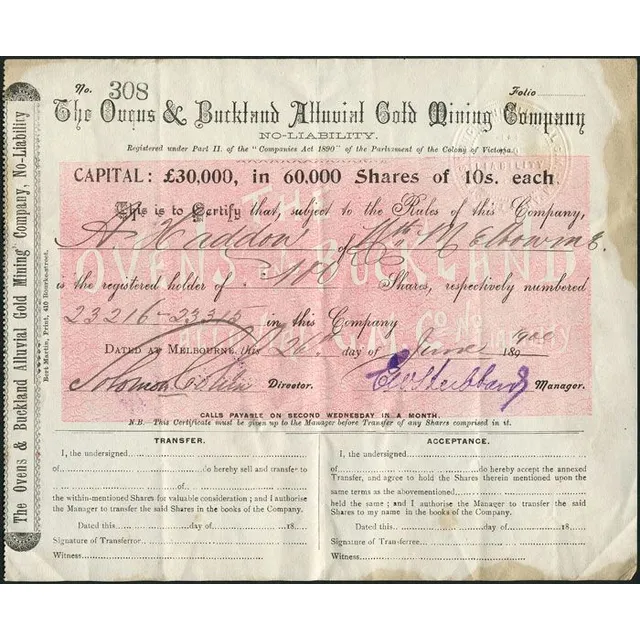 No. 308
Folio
The Ovens & Buckland Alluvial Gold Mining Company
NO-LIABILITY.
Registered under Part II. of the "Companies Act 1890" of the Parliament of the Colony of Victoria.
CAPITAL: £30,000, in 60,000 Shares of 10s. each.
This is to Certify that, subject to the Rules of this Company,
A Haddon of Nth Melbourne
is the registered holder of 100 Shares, respectively numbered
23216-23315 in this Company
DATED AT MELBOURNE, this 26th day of June 1900
Solomon Director. Manager.
CALLS PAYABLE ON SECOND WEDNESDAY IN A MONTH.
N.B. This Certificate must be given up to the Manager before Transfer of any Shares comprised in it.
THE
OVENS AND BUCKLAND
ALLUVIAL G.M. Co No LIABILITY
The Ovens & Buckland Alluvial Gold Mining Company, No-Liability
Bert Martin, Print, 410 Bourke-street.
TRANSFER.
I, the undersigned
of do hereby sell and transfer to
of
the within-mentioned Shares for valuable consideration; and I authorise
the Manager to transfer the said Shares in the books of the Company.
Dated this day of 18
Signature of Transferror
Witness
ACCEPTANCE.
I, the undersigned
of do hereby accept the annexed
Transfer, and agree to hold the Shares therein mentioned upon the
same terms as the abovementioned
held the same; and I authorise the Manager to transfer the said
Shares to my name in the books of the Company.
Dated this day of 18
Signature of Transferree
Witness